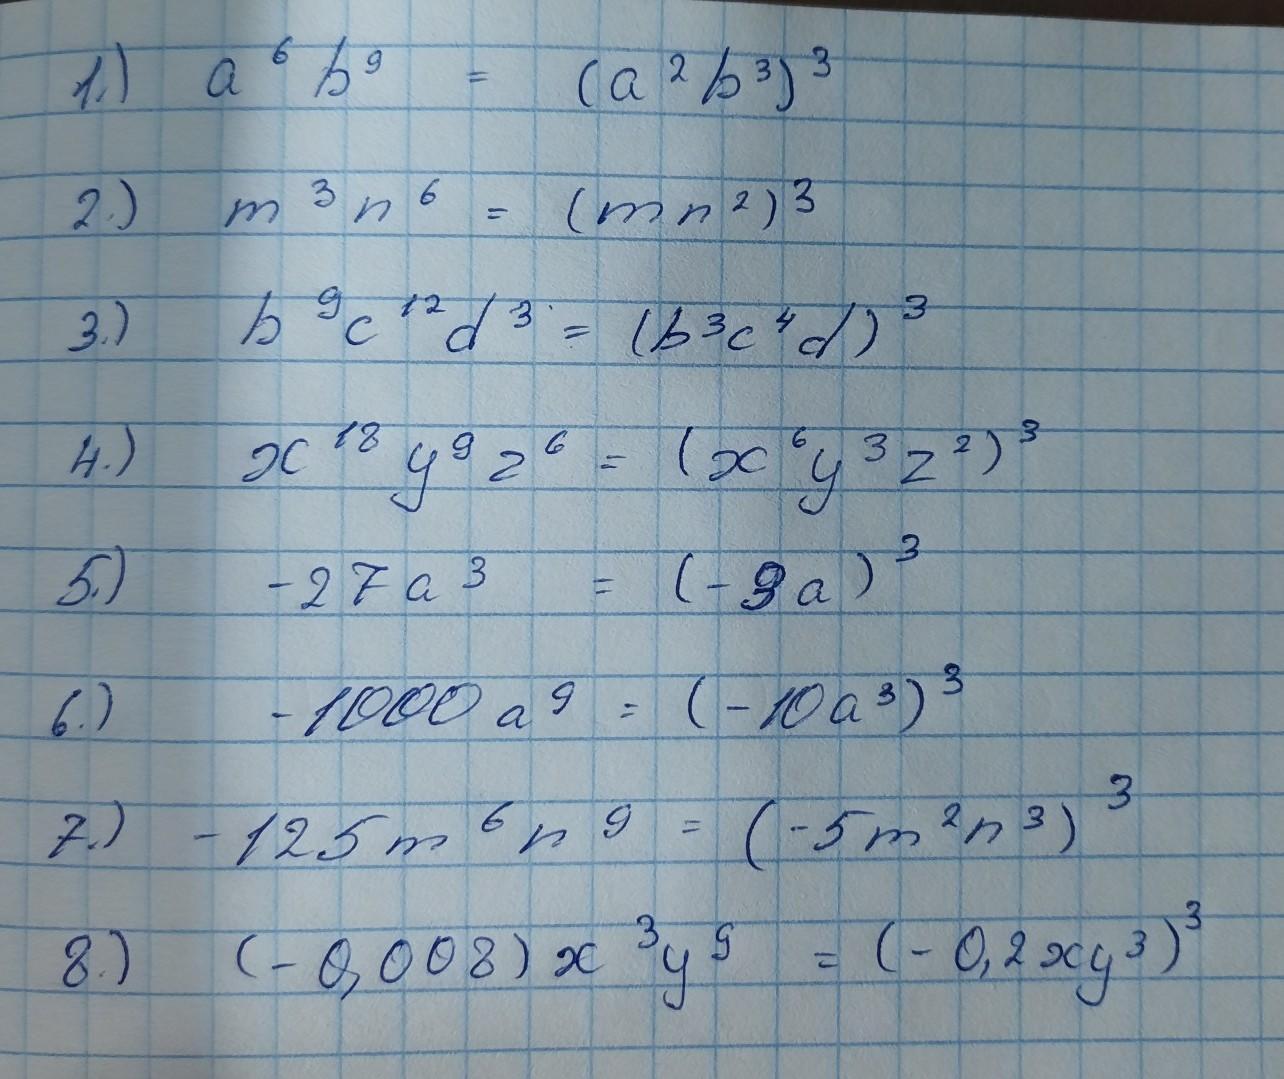 1.) a⁶b⁹ = (a²b³)³
2.) m³n⁶ = (mn²)³
3.) b⁹c¹²d³ = (b³c⁴d)³
4.) x¹⁸y⁹z⁶ = (x⁶y³z²)³
5.) -27a³ = (-3a)³
6.) -1000a⁹ = (-10a³)³
7.) -125m⁶n⁹ = (-5m²n³)³
8.) (-0,008)x³y⁹ = (-0,2xy³)³